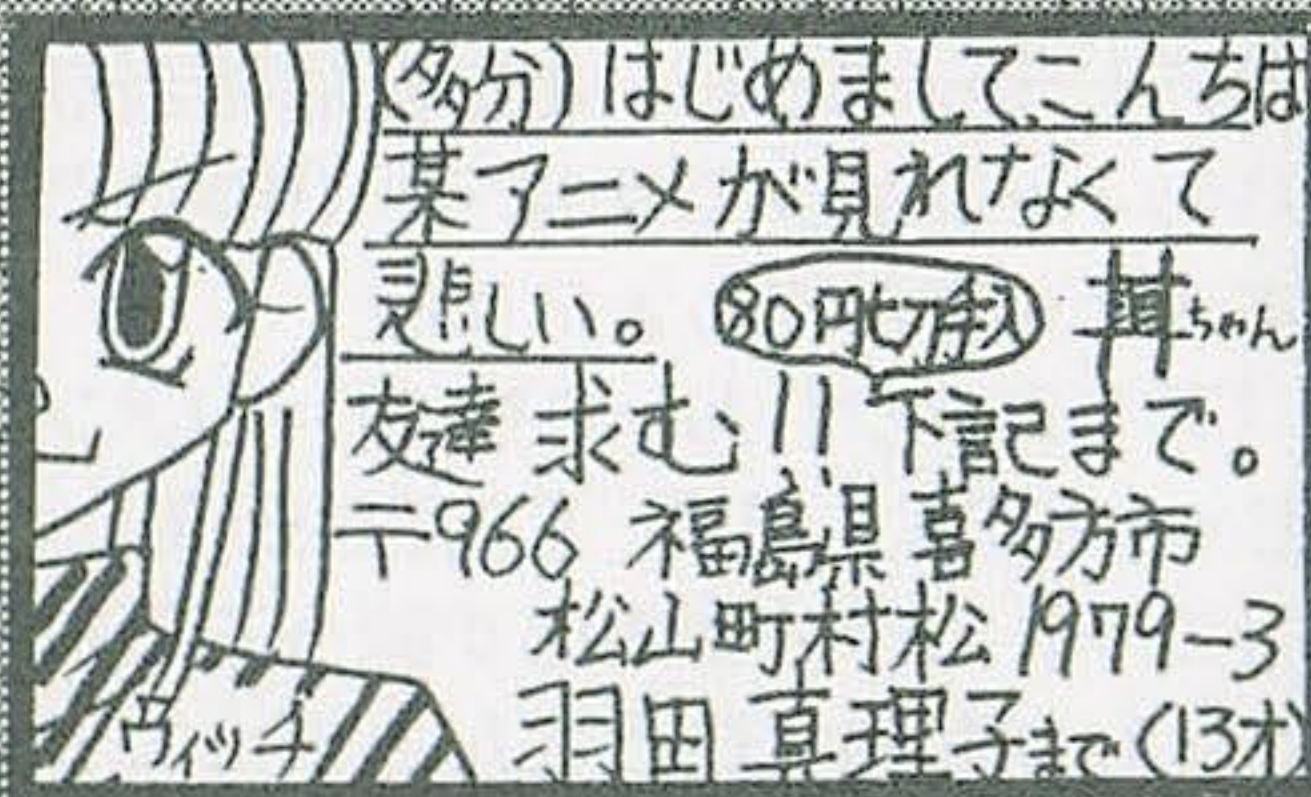 (多分)はじめまして、こんちは
某アニメが見れなくて
悲しい。 80円切手入 茸ちゃん
友達求む!! 下記まで。
〒966 福島県喜多方市
松山町村松1979-3
羽田真理子まで(13才)
ウィッチ